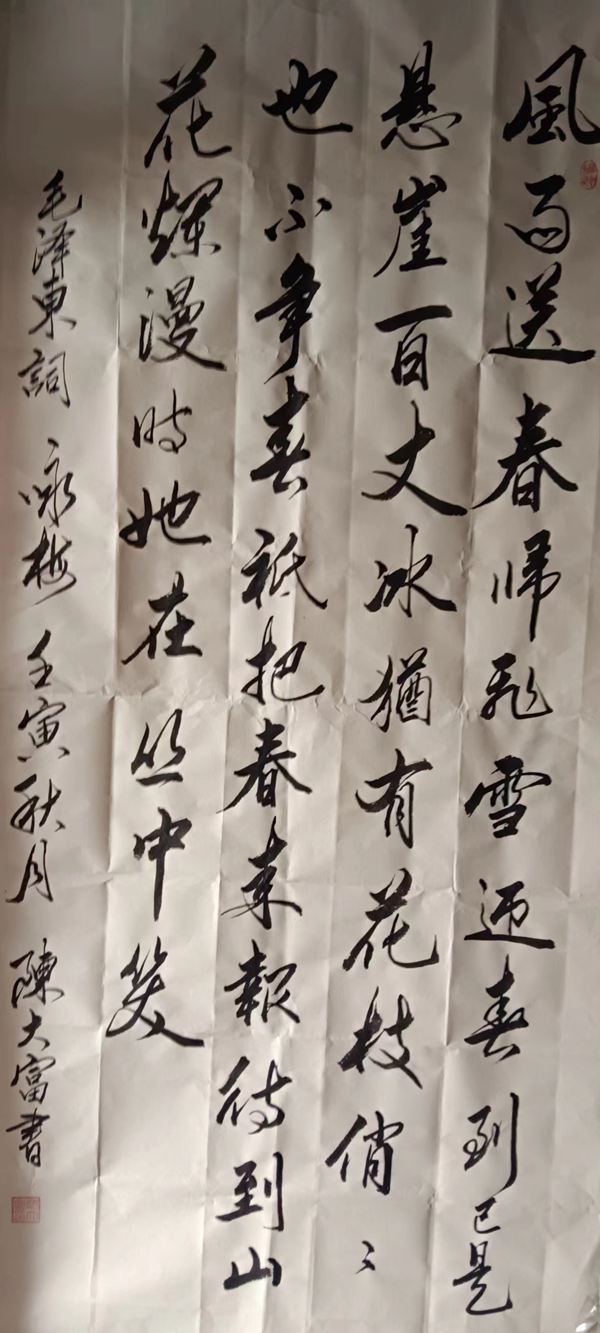 風雨送春归飛雪迎春到已是
悬崖百丈冰猶有花枝俏〻
也不争春祗把春来報待到山
花爛漫時她在丛中笑
毛泽東詞 咏梅 壬寅秋月 陳大富書